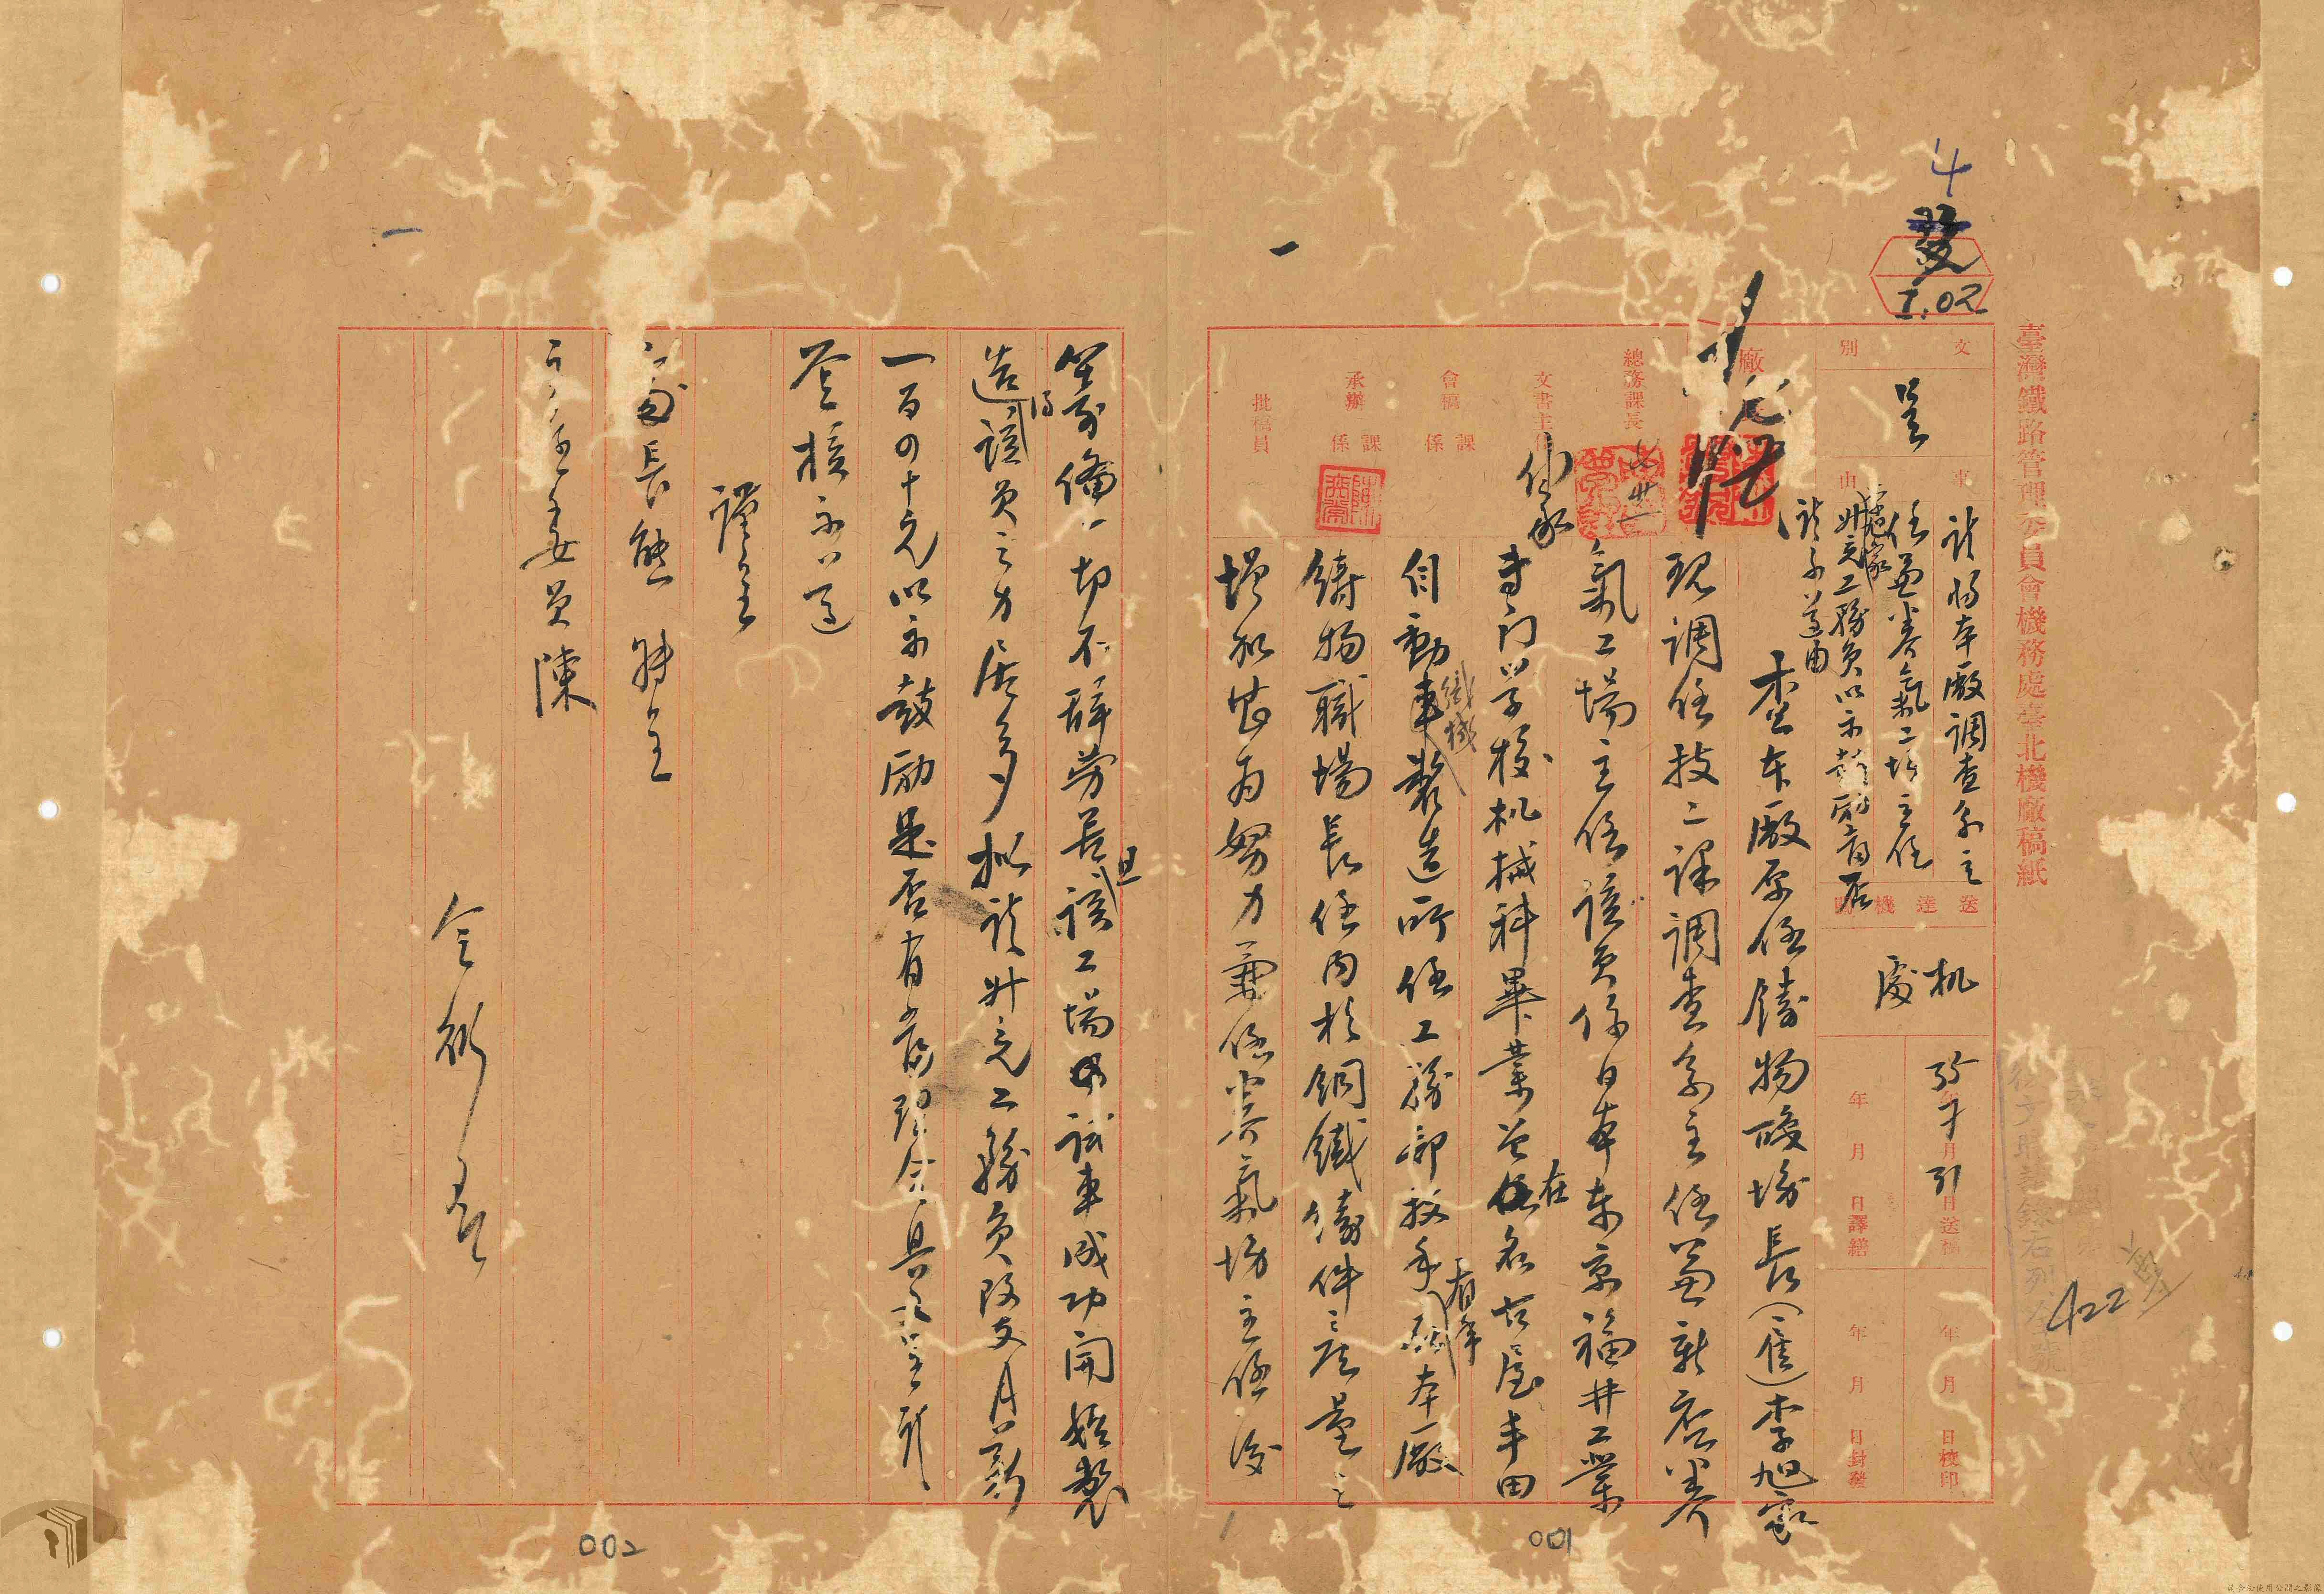 臺灣鐵路管理委員會機務處臺北機廠稿紙
4
發
I.02
文別
呈
事由
請將本廠調查系主
任兼養氣工場主任
李旭家
升充工務員以示鼓勵可否
請示遵由
送達機關
机處
年月日送稿
35 7 31
年月日校印
年月日譯繕
年月日封發
422
廠長
總務課長
七卅一
文書主任
會稿 課係
承辦 課係
批稿員
查本廠原任鑄物職場長(舊)李旭家
現調任技二課調查系主任兼新店養
氣工場主任該員係日本東京福井工業
專門學校机械科畢業曾在名古屋丰田
自動織機製造所任工務部技手有年本廠
鑄物職場長任內於銅鐵鑄件之產量之
增加甚為努力兼任養氣場主任後
籌備一切不辭勞苦且該工場内試車成功開始製
造得該員之力居多擬請升充工務員改支月薪
一百四十元以示鼓勵是否有當理合具文呈祈
鑒核示遵
謹呈
處長熊 轉呈
主任委員陳
仝銜 名
001
002